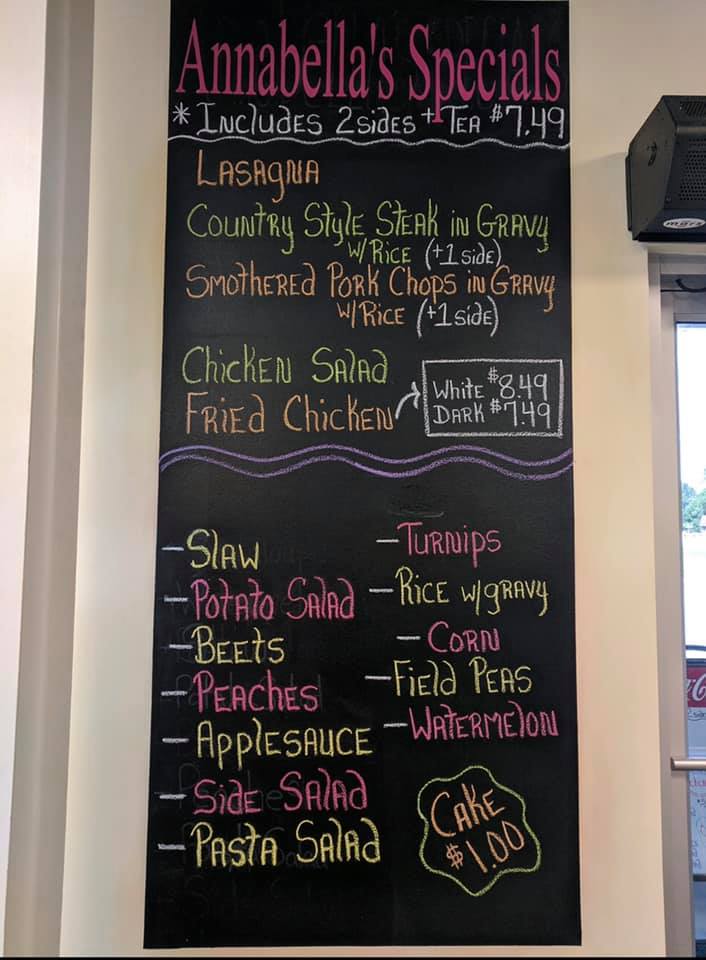 Annabella's Specials
* Includes 2 sides + Tea $7.49
Lasagna
Country Style Steak in Gravy
w/Rice (+1 side)
Smothered Pork Chops in Gravy
w/Rice (+1 side)
Chicken Salad
Fried Chicken
White $8.49
Dark $7.49
- Slaw
- Potato Salad
- Beets
- Peaches
- Applesauce
- Side Salad
- Pasta Salad
- Turnips
- Rice w/gravy
- Corn
- Field Peas
- Watermelon
Cake
$1.00